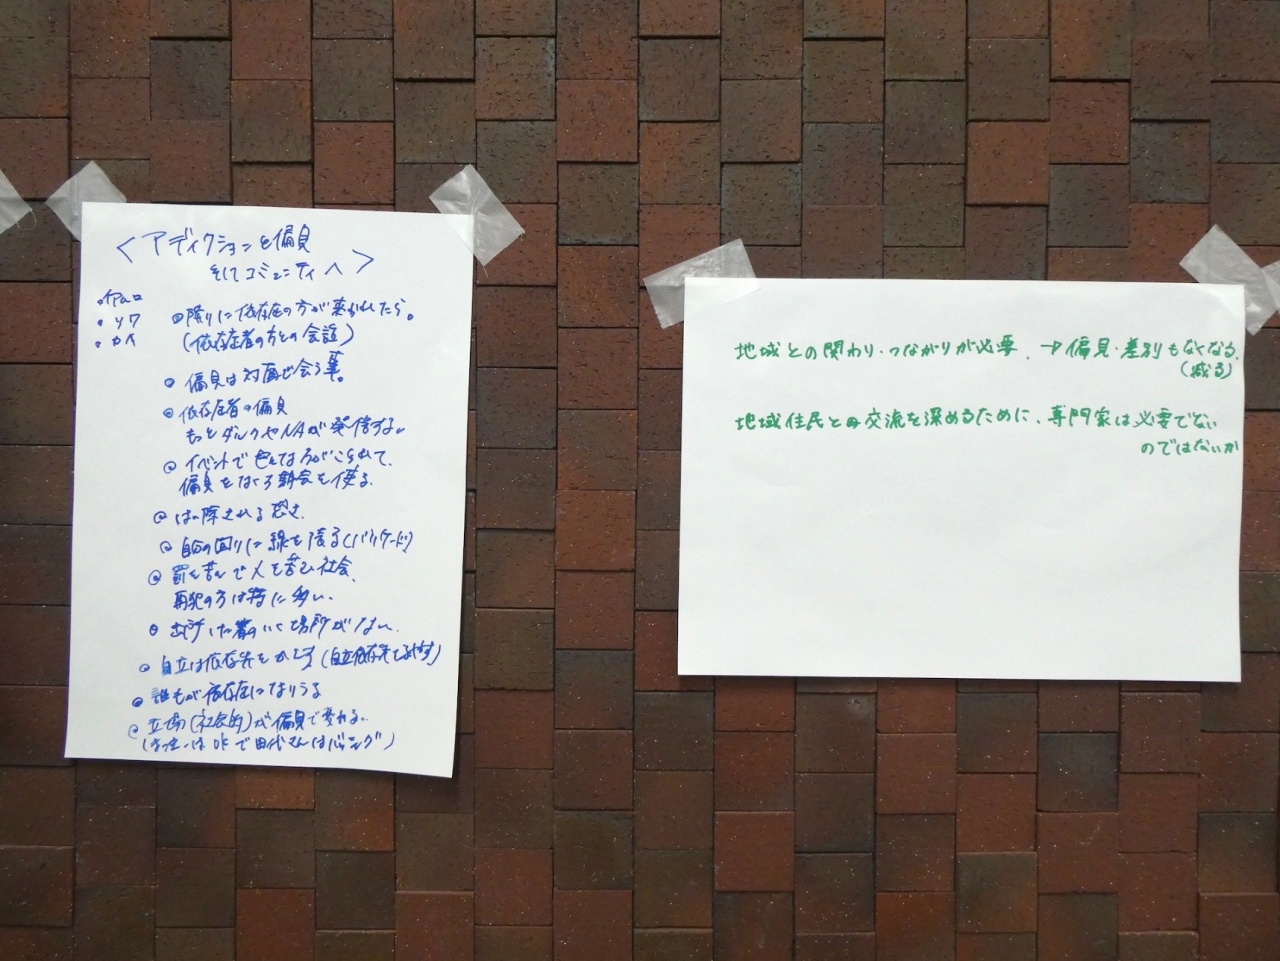 ＜アディクションと偏見
そしてコミュニティへ＞
・カイ
◎隣りに依存症の方が来られたら。
(依存症者の方との会話)
◎偏見は対面で会う事。
◎依存症者の偏見
もっとダルクやNAが発信する。
◎イベントで色んな方がこられて、
偏見をなくす機会を使る。
◎はい除される恐さ
◎自分の回りに線を張る(バリケード)
◎罰を苦しんで人を苦しむ社会、
再犯の方は特に多い。
◎出所した者のいく場所がない。
◎自立は依存先を
◎誰もが依存症になりうる
◎立場(社会的)が偏見で変わる。
はOKで田代さんはバッシング)
地域との関わり・つながりが必要. →偏見・差別もなくなる.
(減る)
地域住民との交流を深めるために、専門家は必要でない
のではないか